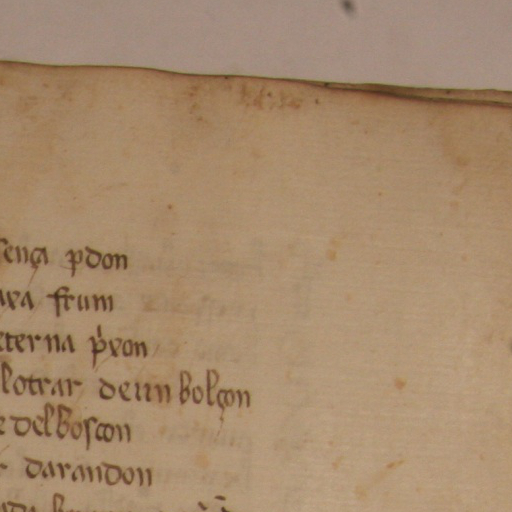 sença pdon
axa frum
eterna pͥxon
lotrar de un bolçon
e del boscon
r darandon